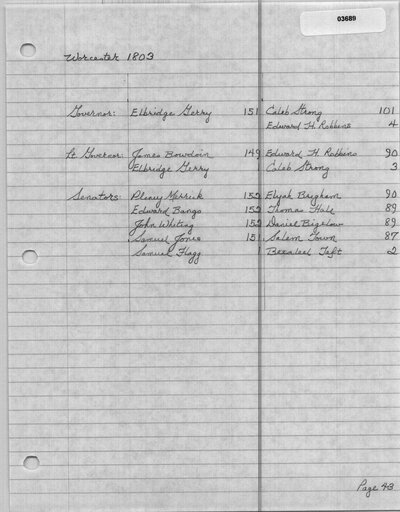 03689
Worcester 1803
Governor: Elbridge Gerry 151 Caleb Strong 101
Edward H. Robbins 4
Lt Governor: James Bowdoin 149 Edward H. Robbins 90
Elbridge Gerry 1 Caleb Strong 3
Senators: Pliny Merrick 152 Elijah Brigham 90
Edward Bangs 152 Thomas Hale 89
John Whiting 152 Daniel Bigelow 89
Samuel Jones 151 Salem Town 87
Samuel Flagg 1 Bezaleel Taft 2
Page 43